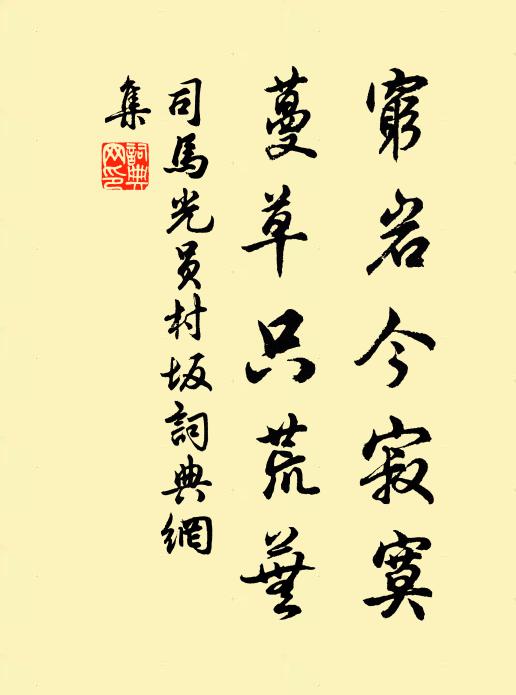 窮岩今寂寞
蔓草只荒蕪
司馬光員村坂詞典網
集
詞典網印